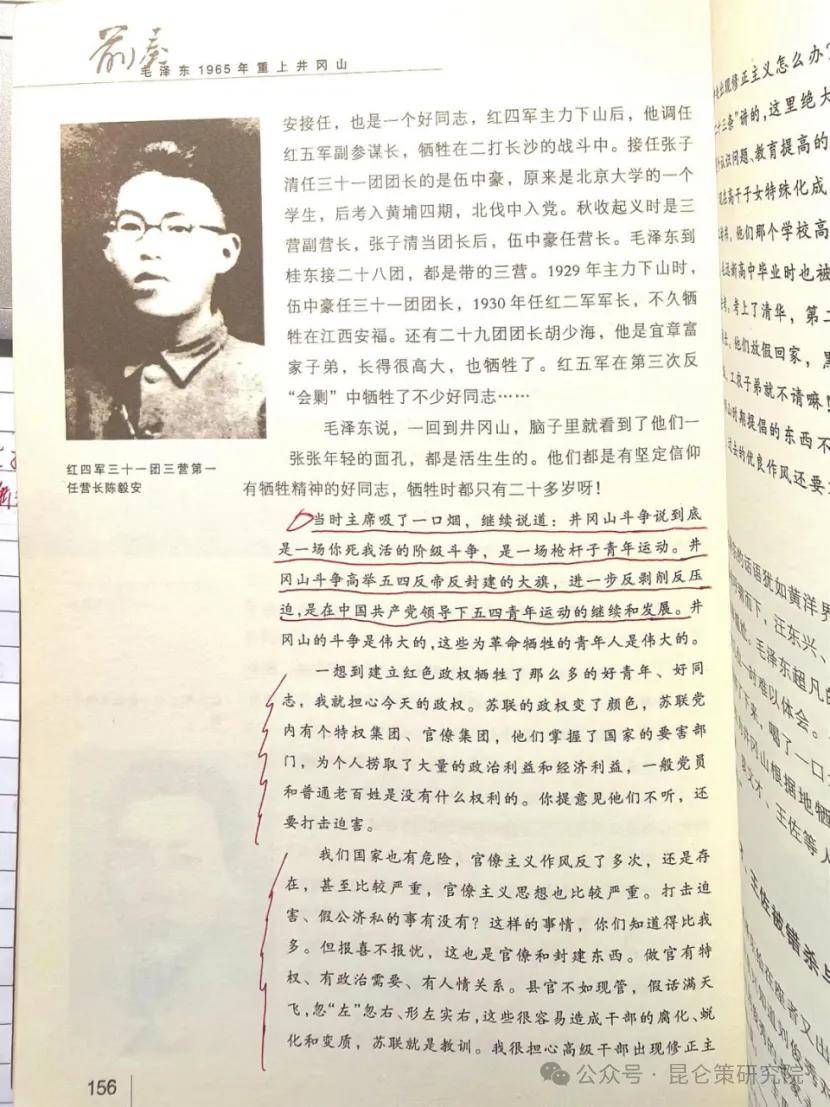 前奏
毛泽东1965年重上井冈山
安接任，也是一个好同志，红四军主力下山后，他调任
红五军副参谋长，牺牲在二打长沙的战斗中。接任张子
清任三十一团团长的是伍中豪，原来是北京大学的一个
学生，后考入黄埔四期，北伐中入党。秋收起义时是三
营副营长，张子清当团长后，伍中豪任营长。毛泽东到
桂东接二十八团，都是带的三营。1929年主力下山时，
伍中豪任三十一团团长，1930年任红二军军长，不久牺
牲在江西安福。还有二十九团团长胡少海，他是宜章富
家子弟，长得很高大，也牺牲了。红五军在第三次反
“会剿”中牺牲了不少好同志……
毛泽东说，一回到井冈山，脑子里就看到了他们一
张张年轻的面孔，都是活生生的。他们都是有坚定信仰
有牺牲精神的好同志，牺牲时都只有二十多岁呀！
红四军三十一团三营第一
任营长陈毅安
当时主席吸了一口烟，继续说道：井冈山斗争说到底
是一场你死我活的阶级斗争，是一场枪杆子青年运动。井
冈山斗争高举五四反帝反封建的大旗，进一步反剥削反压
迫，是在中国共产党领导下五四青年运动的继续和发展。井
冈山的斗争是伟大的，这些为革命牺牲的青年人是伟大的。
一想到建立红色政权牺牲了那么多的好青年、好同
志，我就担心今天的政权。苏联的政权变了颜色，苏联党
内有个特权集团、官僚集团，他们掌握了国家的要害部
门，为个人捞取了大量的政治利益和经济利益，一般党员
和普通老百姓是没有什么权利的。你提意见他们不听，还
要打击迫害。
我们国家也有危险，官僚主义作风反了多次，还是存
在，甚至比较严重，官僚主义思想也比较严重。打击迫
害、假公济私的事有没有？这样的事情，你们知道得比我
多。但报喜不报忧，这也是官僚和封建东西。做官有特
权、有政治需要、有人情关系。县官不如现管，假话满天
飞，忽“左”忽右、形左实右，这些很容易造成干部的腐化、蜕
化和变质，苏联就是教训。我很担心高级干部出现修正主
156
出现修正主义怎么办？
十三条”讲的，这里绝大
认识问题、教育提高的
现在高干子女特殊化成
他们那个学校高
远新高中毕业时也被
考上了清华，第二
他们放假回家，黑
工农子弟就不请嘛！
山时期提倡的东西不
过去的优良作风还要
的话语犹如黄洋界
而下，汪东兴、
毛泽东超凡的
一时难以体会。
了下来，喝了一口
井冈山根据地牺
袁文才、王佐等人
王佐被错杀
公众号·昆仑策研究院